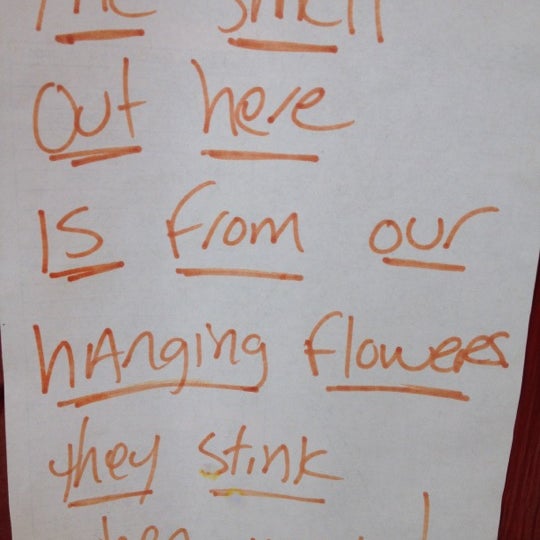 The smell
Out here
IS from our
hAnging flowers
they stink